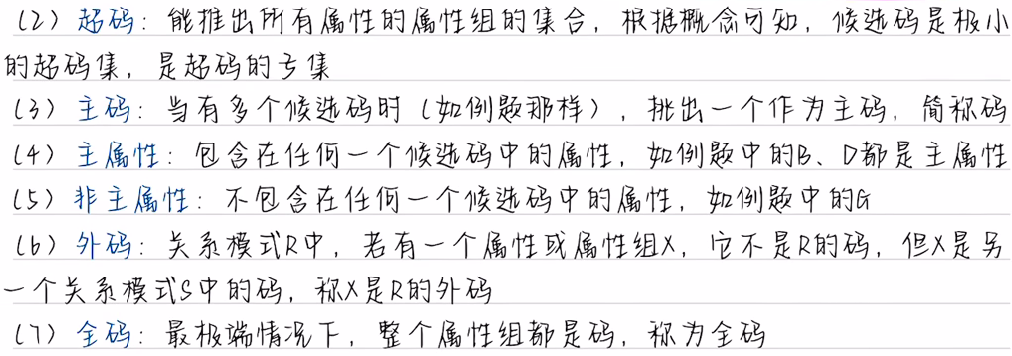 (2) 超码：能推出所有属性的属性组的集合，根据概念可知，候选码是极小
的超码集，是超码的子集
(3) 主码：当有多个候选码时（如例题那样），挑出一个作为主码，简称码
(4) 主属性：包含在任何一个候选码中的属性，如例题中的B、D都是主属性
(5) 非主属性：不包含在任何一个候选码中的属性，如例题中的G
(6) 外码：关系模式R中，若有一个属性或属性组X，它不是R的码，但X是另
一个关系模式S中的码，称X是R的外码
(7) 全码：最极端情况下，整个属性组都是码，称为全码